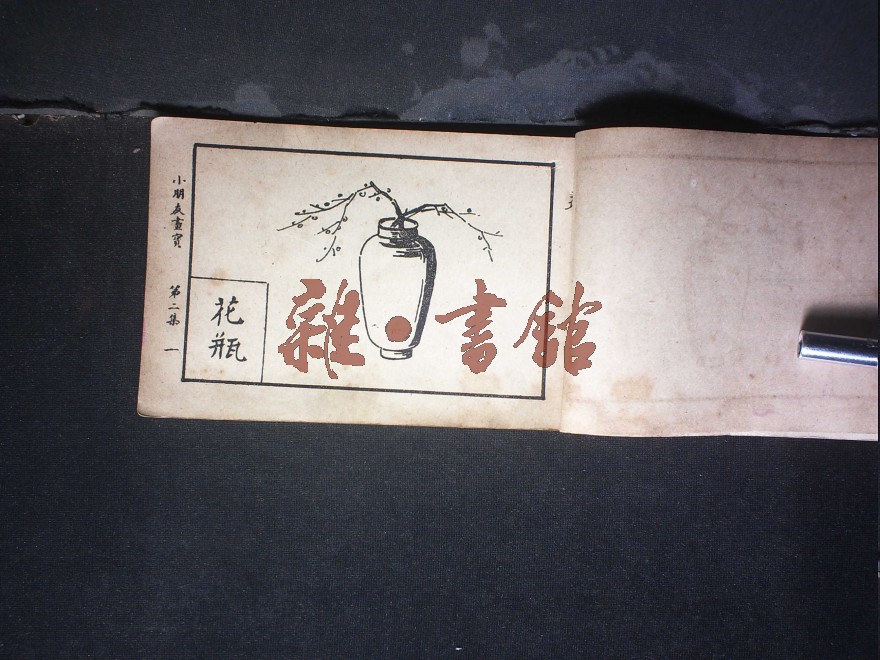 小朋友畫寶
第二集
一
花瓶
雜·書館